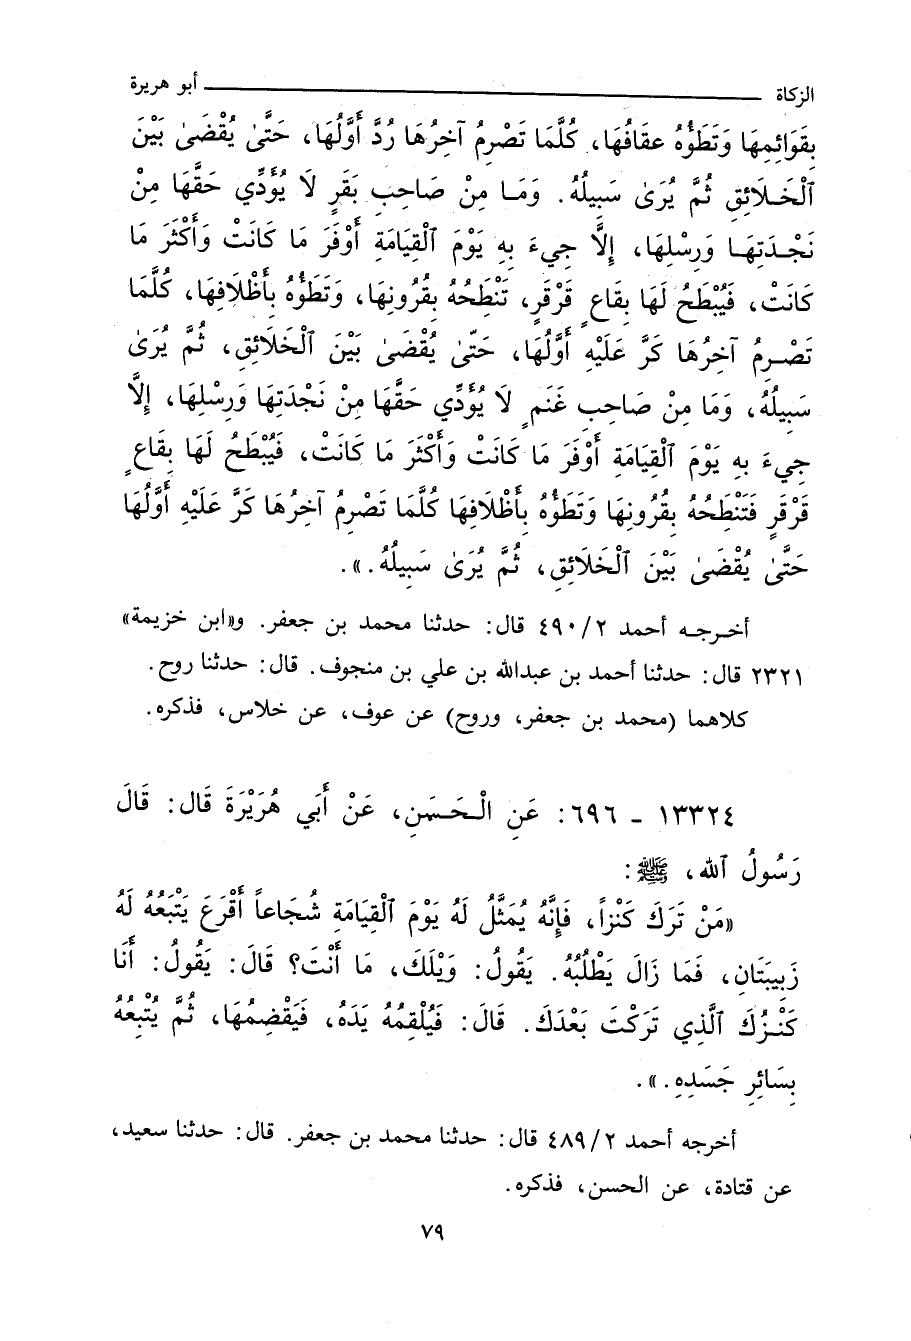 الزكاة ــــــــــــــــــــــــــــــــ أبو هريرة
بِقَوَائِمِهَا وَتَطَؤُهُ عِقَافُهَا، كُلَّمَا تَصْرِمُ آخِرُهَا رُدَّ أَوَّلُهَا، حَتَّىٰ يُقْضَىٰ بَيْنَ
ٱلْخَلَائِقِ ثُمَّ يُرَىٰ سَبِيلُهُ. وَمَا مِنْ صَاحِبِ بَقَرٍ لَا يُؤَدِّي حَقَّهَا مِنْ
نَجْدَتِهَا وَرِسْلِهَا، إِلَّا جِيءَ بِهِ يَوْمَ ٱلْقِيَامَةِ أَوْفَرَ مَا كَانَتْ وَأَكْثَرَ مَا
كَانَتْ، فَيُبْطَحُ لَهَا بِقَاعٍ قَرْقَرٍ، تَنْطَحُهُ بِقُرُونِهَا، وَتَطَؤُهُ بِأَظْلَافِهَا، كُلَّمَا
تَصْرِمُ آخِرُهَا كَرَّ عَلَيْهِ أَوَّلُهَا، حَتَّىٰ يُقْضَىٰ بَيْنَ ٱلْخَلَائِقِ، ثُمَّ يُرَىٰ
سَبِيلُهُ، وَمَا مِنْ صَاحِبِ غَنَمٍ لَا يُؤَدِّي حَقَّهَا مِنْ نَجْدَتِهَا وَرِسْلِهَا، إِلَّا
جِيءَ بِهِ يَوْمَ ٱلْقِيَامَةِ أَوْفَرَ مَا كَانَتْ وَأَكْثَرَ مَا كَانَتْ، فَيُبْطَحُ لَهَا بِقَاعٍ
قَرْقَرٍ فَتَنْطَحُهُ بِقُرُونِهَا وَتَطَؤُهُ بِأَظْلَافِهَا كُلَّمَا تَصْرِمُ آخِرُهَا كَرَّ عَلَيْهِ أَوَّلُهَا
حَتَّىٰ يُقْضَىٰ بَيْنَ ٱلْخَلَائِقِ، ثُمَّ يُرَىٰ سَبِيلُهُ.».
أخرجه أحمد ٢/٤٩٠ قال: حدثنا محمد بن جعفر. و«ابن خزيمة»
٢٣٢١ قال: حدثنا أحمد بن عبدالله بن علي بن منجوف. قال: حدثنا روح.
كلاهما (محمد بن جعفر، وروح) عن عوف، عن خلاس، فذكره.
١٣٣٢٤ - ٦٩٦: عَنِ الْحَسَنِ، عَنْ أَبِي هُرَيْرَةَ قَالَ: قَالَ
رَسُولُ ٱللهِ، ﷺ:
«مَنْ تَرَكَ كَنْزاً، فَإِنَّهُ يُمَثَّلُ لَهُ يَوْمَ ٱلْقِيَامَةِ شُجَاعاً أَقْرَعَ يَتْبَعُهُ لَهُ
زَبِيبَتَانِ، فَمَا زَالَ يَطْلُبُهُ. يَقُولُ: وَيْلَكَ، مَا أَنْتَ؟ قَالَ: يَقُولُ: أَنَا
كَنْزُكَ ٱلَّذِي تَرَكْتَ بَعْدَكَ. قَالَ: فَيُلْقِمُهُ يَدَهُ، فَيَقْضِمُهَا، ثُمَّ يُتْبِعُهُ
بِسَائِرِ جَسَدِهِ.».
أخرجه أحمد ٢/٤٨٩ قال: حدثنا محمد بن جعفر. قال: حدثنا سعيد،
عن قتادة، عن الحسن، فذكره.
٧٩